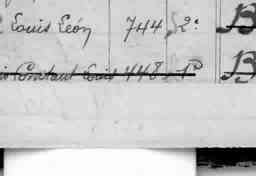 Louis Léon 744 2º B
Constant Louis 448 1º B